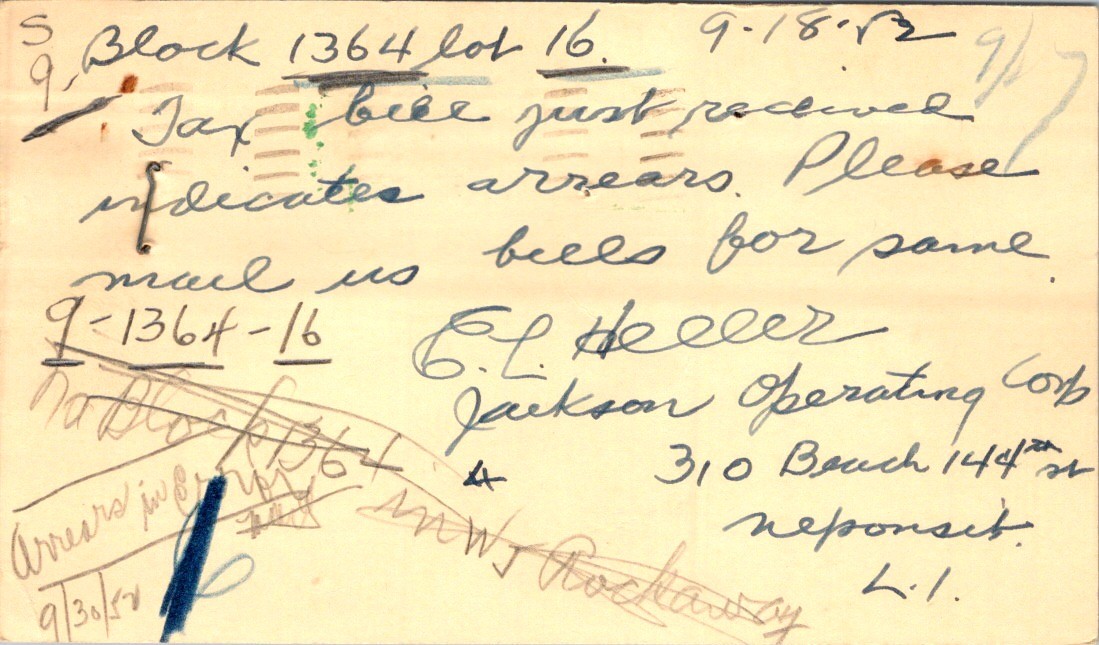 S
9, Block 1364 lot 16. 9-18-52
9/17
Tax bill just received
indicates arrears. Please
mail us bills for same.
9-1364-16
E. L. Heller
Jackson Operating Corp
No Block 1364
310 Beach 144th st
Arrears in
in W Rockaway
neponsit.
L.I.
9/30/52